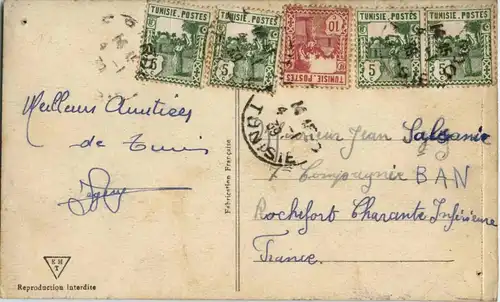 TUNISIE . POSTES
5
TUNISIE . POSTES
5
TUNISIE . POSTES
10
TUNISIE . POSTES
5
TUNISIE . POSTES
5
Meilleurs Amitiées
de Tunis
TUNISIE
Monsieur Jean
7 Compagnie BAN
Rochefort Charante Inférieure
France
Fabrication Française
Reproduction interdite